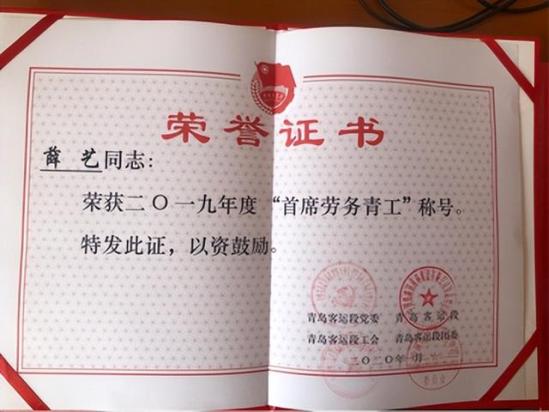 荣誉证书
薛艺同志：
荣获二〇一九年度“首席劳务青工”称号。
特发此证，以资鼓励。
青岛客运段党委 青岛客运段
青岛客运段工会 青岛客运段团委
二〇二〇年一月